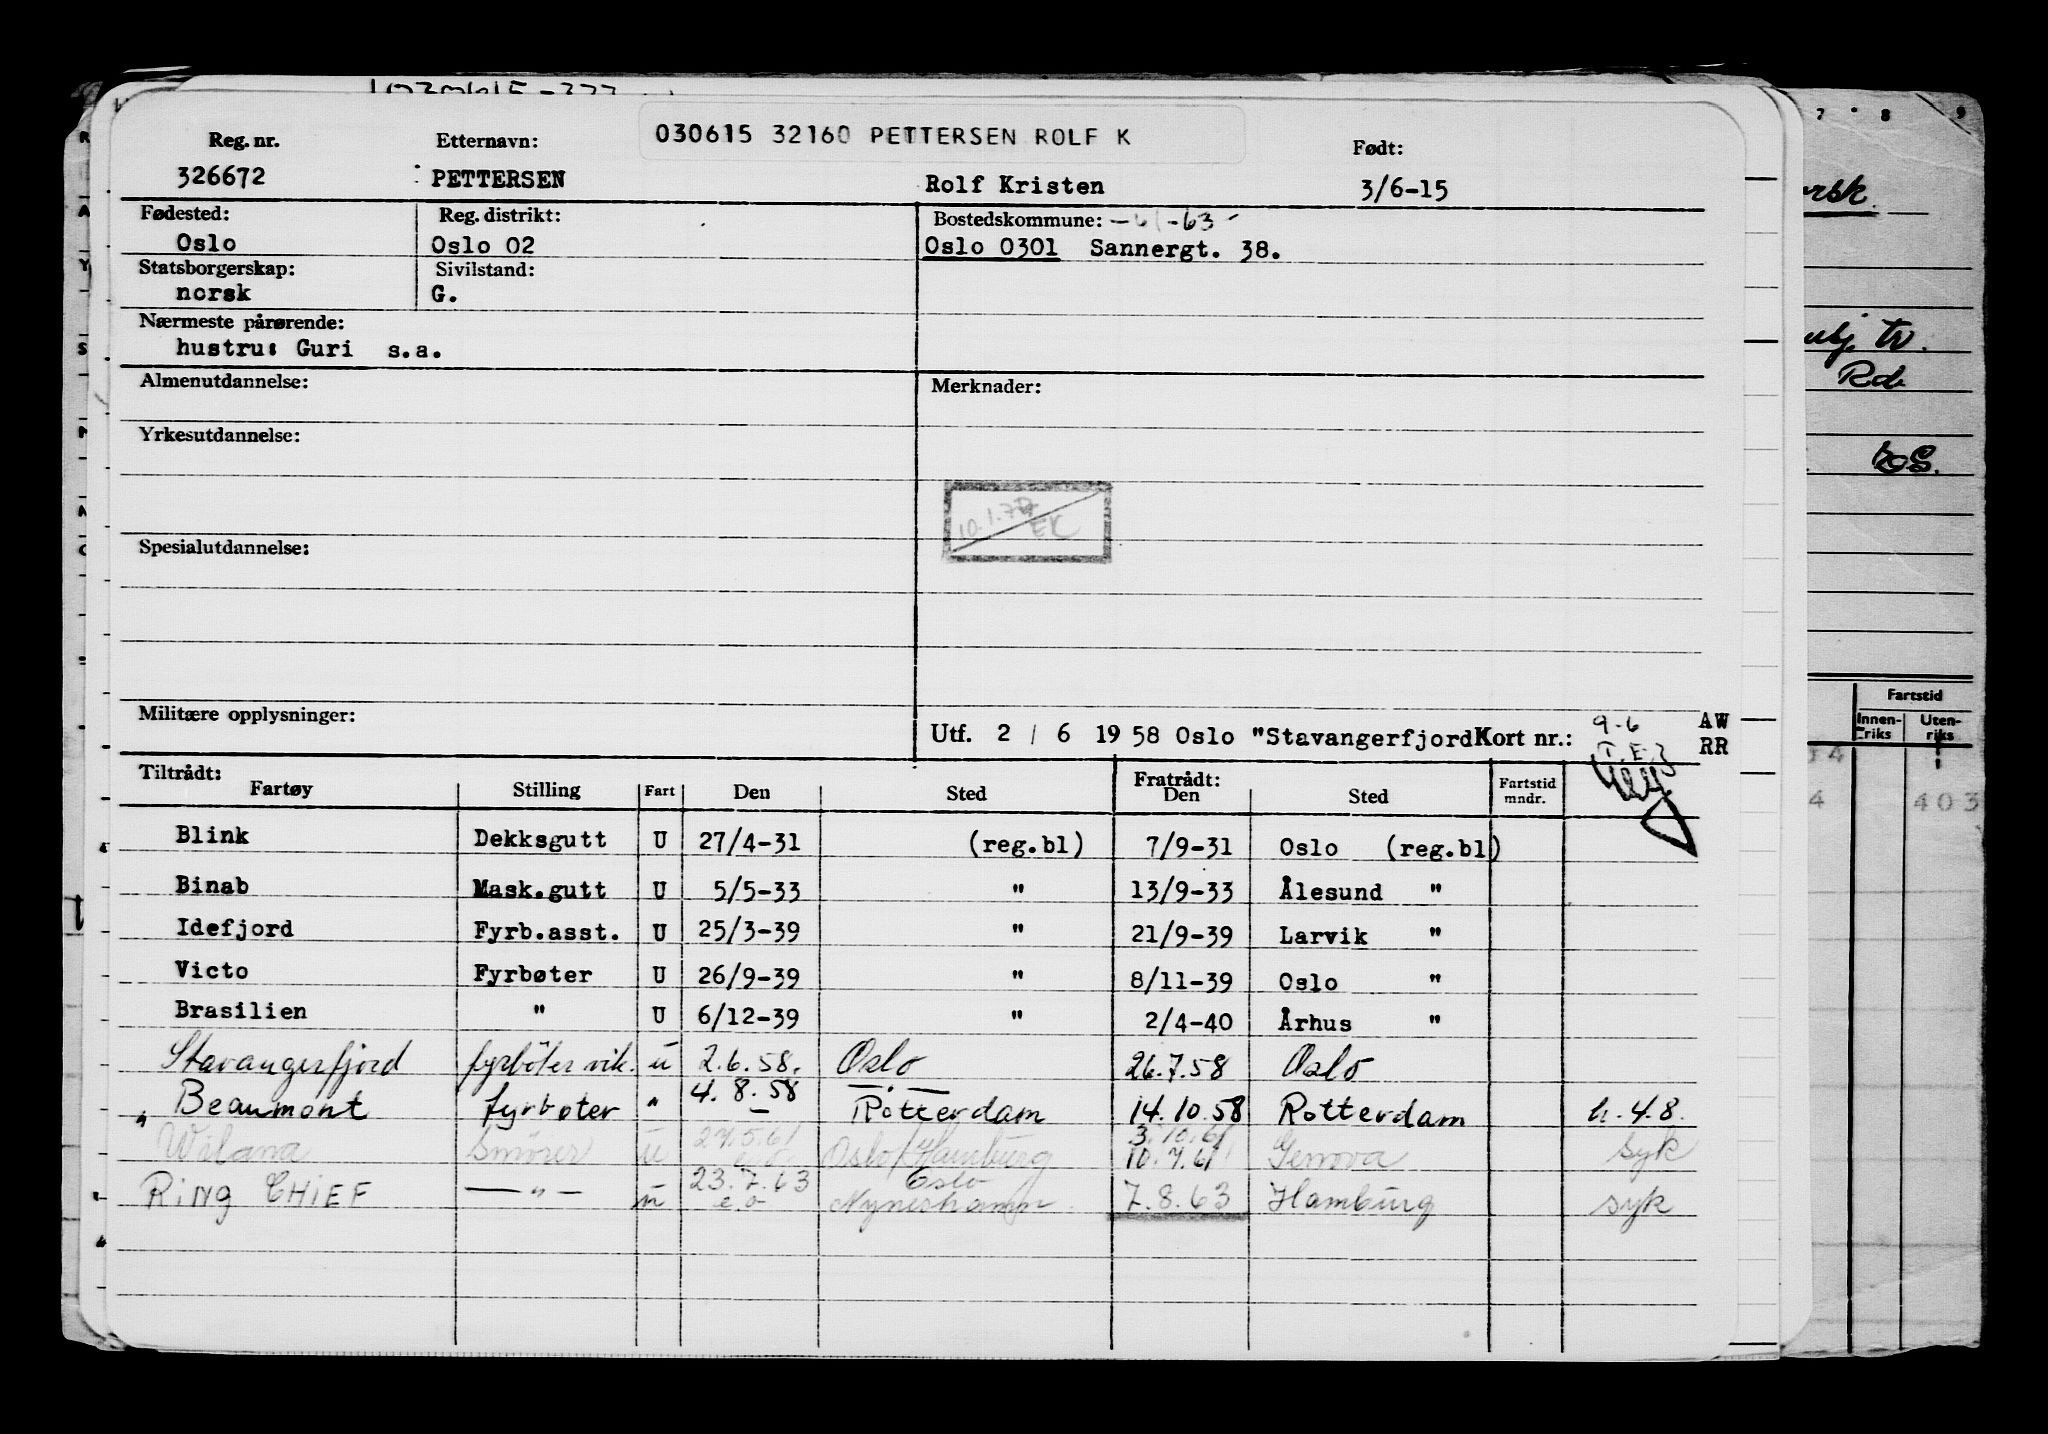 030615 32160 PETTERSEN ROLF K
Reg. nr. Etternavn: Født:
326672 PETTERSEN Rolf Kristen 3/6-15
Fødested: Reg. distrikt: Bostedskommune: -61-63-
Oslo Oslo 02 Oslo 0301 Sannergt. 38.
Statsborgerskap: Sivilstand:
norsk G.
Nærmeste pårørende:
hustru: Guri s.a.
Almenutdannelse: Merknader:
Yrkesutdannelse:
EK
Spesialutdannelse:
Militære opplysninger:
Utf. 2 / 6 19 58 Oslo "Stavangerfjord Kort nr.: 9-6 AW
RR
Tiltrådt: Fratrådt:
Fartøy Stilling Fart Den Sted Den Sted Fartstid mndr.
Blink Dekksgutt U 27/4-31 (reg.bl) 7/9-31 Oslo (reg.bl)
Binab Mask.gutt U 5/5-33 " 13/9-33 Ålesund "
Idefjord Fyrb.asst. U 25/3-39 " 21/9-39 Larvik "
Victo Fyrbøter U 26/9-39 " 8/11-39 Oslo "
Brasilien " U 6/12-39 " 2/4-40 Århus "
Stavangerfjord fyrböter vik. u 2.6.58. Oslo 26.7.58 Oslo
Beaumont fyrbøter " 4.8.58 Rotterdam 14.10.58 Rotterdam h. 4.8.
Smörer u Oslo/Hamburg 3.10.61 Genova syk
RiNg CHiEF —"— u 23.7.63 Oslo 7.8.63 Hamburg syk
7 8 9
Rd.
Fartstid
Innenriks Utenriks
4 403